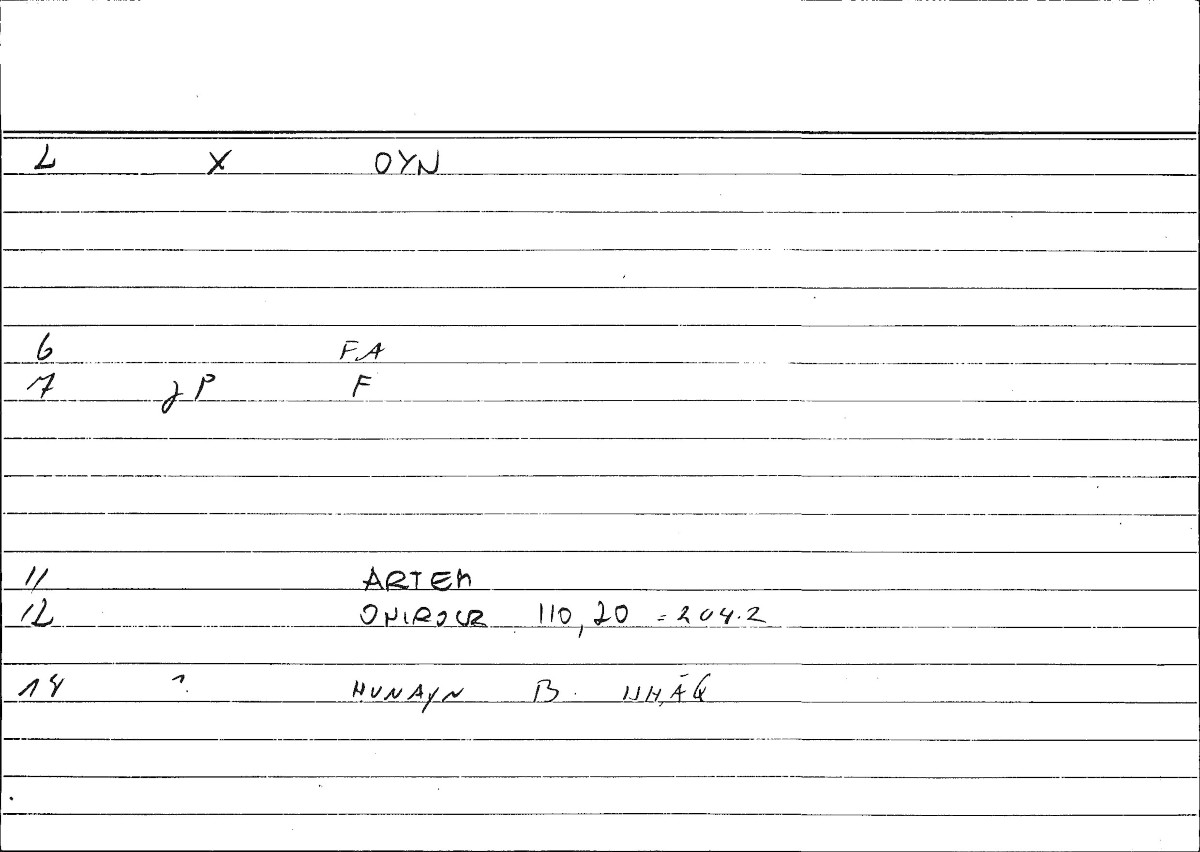 L X OYN
6 F.A
7 P F
11 ARTEM
12 ONIROCR 110,20 = 204.2
14 ? HUNAYN B. ISḤĀQ